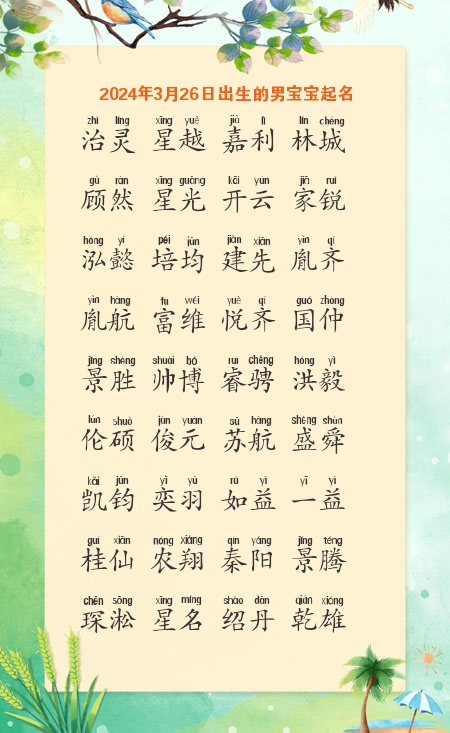 2024年3月26日出生的男宝宝起名
zhì líng xīng yuè jiā lì lín chéng
治灵 星越 嘉利 林城
gù rán xīng guāng kāi yún jiā ruì
顾然 星光 开云 家锐
hóng yì péi jūn jiàn xiān yìn qí
泓懿 培均 建先 胤齐
yìn háng fù wéi yuè qí guó zhòng
胤航 富维 悦齐 国仲
jǐng shèng shuài bó ruì chěng hóng yì
景胜 帅博 睿骋 洪毅
lún shuò jùn yuán sū háng shèng shùn
伦硕 俊元 苏航 盛舜
kǎi jūn yì yǔ rú yì yī yì
凯钧 奕羽 如益 一益
guì xiān nóng xiáng qín yáng jǐng téng
桂仙 农翔 秦阳 景腾
chēn sōng xīng míng shào dān qián xióng
琛淞 星名 绍丹 乾雄